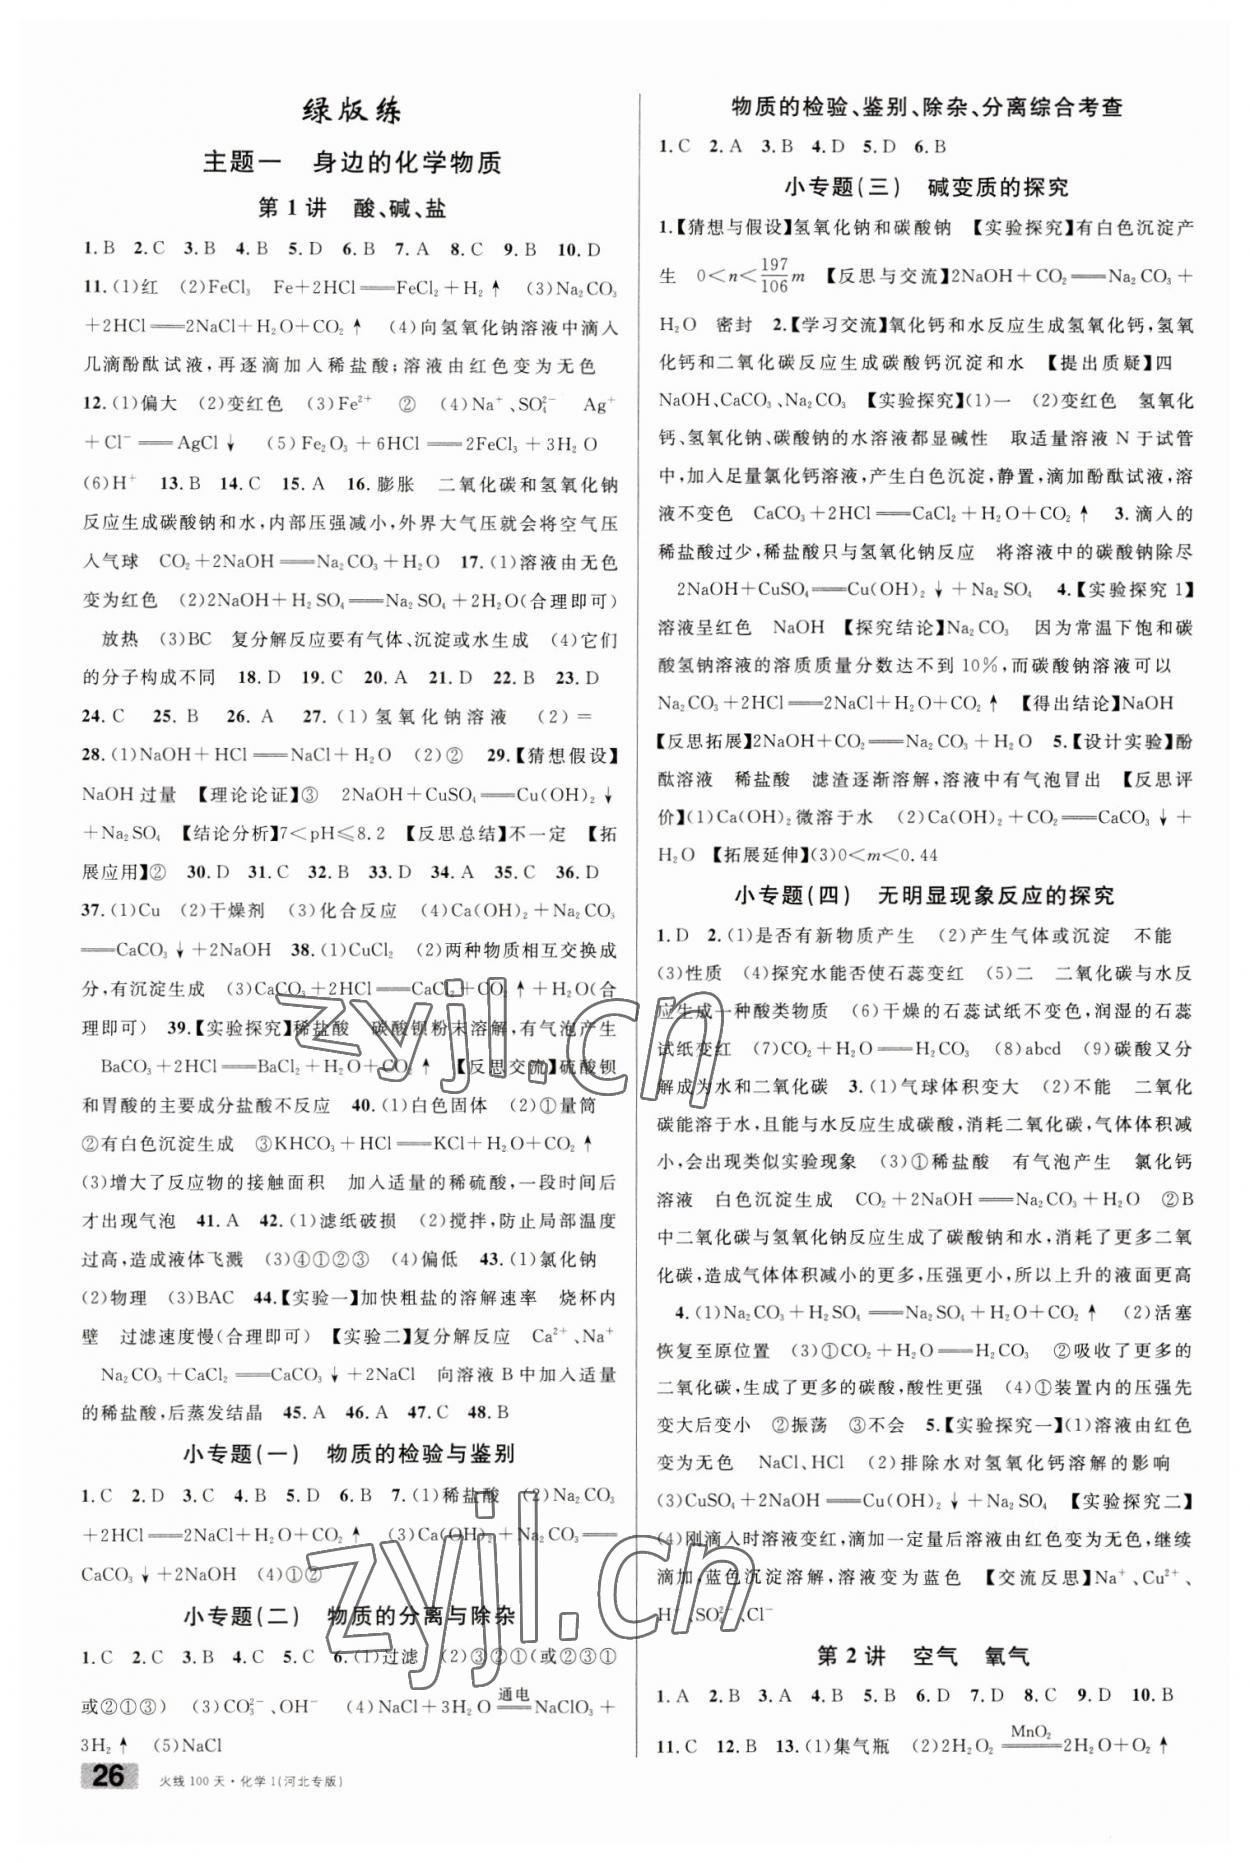 绿版练
主题一　身边的化学物质
第 1 讲　酸、碱、盐
1. B　2. C　3. B　4. B　5. D　6. B　7. A　8. C　9. B　10. D
11. (1)红　(2)FeCl₃　Fe+2HCl══FeCl₂+H₂↑　(3)Na₂CO₃
+2HCl══2NaCl+H₂O+CO₂↑　(4)向氢氧化钠溶液中滴入
几滴酚酞试液,再逐滴加入稀盐酸;溶液由红色变为无色
12. (1)偏大　(2)变红色　(3)Fe²⁺　②　(4)Na⁺、SO₄²⁻　Ag⁺
+Cl⁻══AgCl↓　(5)Fe₂O₃+6HCl══2FeCl₃+3H₂O
(6)H⁺　13. B　14. C　15. A　16. 膨胀　二氧化碳和氢氧化钠
反应生成碳酸钠和水,内部压强减小,外界大气压就会将空气压
入气球　CO₂+2NaOH══Na₂CO₃+H₂O　17. (1)溶液由无色
变为红色　(2)2NaOH+H₂SO₄══Na₂SO₄+2H₂O(合理即可)
放热　(3)BC　复分解反应要有气体、沉淀或水生成　(4)它们
的分子构成不同　18. D　19. C　20. A　21. D　22. B　23. D
24. C　25. B　26. A　27. (1)氢氧化钠溶液　(2)=
28. (1)NaOH+HCl══NaCl+H₂O　(2)②　29.【猜想假设】
NaOH过量　【理论论证】③　2NaOH+CuSO₄══Cu(OH)₂↓
+Na₂SO₄　【结论分析】7<pH≤8.2　【反思总结】不一定　【拓
展应用】②　30. D　31. C　32. B　33. D　34. D　35. C　36. D
37. (1)Cu　(2)干燥剂　(3)化合反应　(4)Ca(OH)₂+Na₂CO₃
══CaCO₃↓+2NaOH　38. (1)CuCl₂　(2)两种物质相互交换成
分,有沉淀生成　(3)CaCO₃+2HCl══CaCl₂+CO₂↑+H₂O(合
理即可)　39.【实验探究】稀盐酸　碳酸钡粉末溶解,有气泡产生
BaCO₃+2HCl══BaCl₂+H₂O+CO₂↑　【反思交流】硫酸钡
和胃酸的主要成分盐酸不反应　40. (1)白色固体　(2)①量筒
②有白色沉淀生成　③KHCO₃+HCl══KCl+H₂O+CO₂↑
(3)增大了反应物的接触面积　加入适量的稀硫酸,一段时间后
才出现气泡　41. A　42. (1)滤纸破损　(2)搅拌,防止局部温度
过高,造成液体飞溅　(3)④①②③　(4)偏低　43. (1)氯化钠
(2)物理　(3)BAC　44.【实验一】加快粗盐的溶解速率　烧杯内
壁　过滤速度慢(合理即可)　【实验二】复分解反应　Ca²⁺、Na⁺
Na₂CO₃+CaCl₂══CaCO₃↓+2NaCl　向溶液B中加入适量
的稀盐酸,后蒸发结晶　45. A　46. A　47. C　48. B
小专题(一)　物质的检验与鉴别
1. C　2. D　3. C　4. B　5. D　6. B　7. (1)稀盐酸　(2)Na₂CO₃
+2HCl══2NaCl+H₂O+CO₂↑　(3)Ca(OH)₂+Na₂CO₃══
CaCO₃↓+2NaOH　(4)①②
小专题(二)　物质的分离与除杂
1. C　2. A　3. B　4. C　5. C　6. (1)过滤　(2)③②①(或②③①
或②①③)　(3)CO₃²⁻、OH⁻　(4)NaCl+3H₂O═通电═NaClO₃+
3H₂↑　(5)NaCl
26　火线100天·化学1(河北专版)
物质的检验、鉴别、除杂、分离综合考查
1. C　2. A　3. B　4. D　5. D　6. B
小专题(三)　碱变质的探究
1.【猜想与假设】氢氧化钠和碳酸钠　【实验探究】有白色沉淀产
生　0<n<197/106 m　【反思与交流】2NaOH+CO₂══Na₂CO₃+
H₂O　密封　2.【学习交流】氧化钙和水反应生成氢氧化钙,氢氧
化钙和二氧化碳反应生成碳酸钙沉淀和水　【提出质疑】四
NaOH、CaCO₃、Na₂CO₃　【实验探究】(1)一　(2)变红色　氢氧化
钙、氢氧化钠、碳酸钠的水溶液都显碱性　取适量溶液N于试管
中,加入足量氯化钙溶液,产生白色沉淀,静置,滴加酚酞试液,溶
液不变色　CaCO₃+2HCl══CaCl₂+H₂O+CO₂↑　3. 滴入的
稀盐酸过少,稀盐酸只与氢氧化钠反应　将溶液中的碳酸钠除尽
2NaOH+CuSO₄══Cu(OH)₂↓+Na₂SO₄　4.【实验探究1】
溶液呈红色　NaOH　【探究结论】Na₂CO₃　因为常温下饱和碳
酸氢钠溶液的溶质质量分数达不到10%,而碳酸钠溶液可以
Na₂CO₃+2HCl══2NaCl+H₂O+CO₂↑　【得出结论】NaOH
【反思拓展】2NaOH+CO₂══Na₂CO₃+H₂O　5.【设计实验】酚
酞溶液　稀盐酸　滤渣逐渐溶解,溶液中有气泡冒出　【反思评
价】(1)Ca(OH)₂微溶于水　(2)Ca(OH)₂+CO₂══CaCO₃↓+
H₂O　【拓展延伸】(3)0<m<0.44
小专题(四)　无明显现象反应的探究
1. D　2. (1)是否有新物质产生　(2)产生气体或沉淀　不能
(3)性质　(4)探究水能否使石蕊变红　(5)二　二氧化碳与水反
应生成一种酸类物质　(6)干燥的石蕊试纸不变色,润湿的石蕊
试纸变红　(7)CO₂+H₂O══H₂CO₃　(8)abcd　(9)碳酸又分
解成为水和二氧化碳　3. (1)气球体积变大　(2)不能　二氧化
碳能溶于水,且能与水反应生成碳酸,消耗二氧化碳,气体体积减
小,会出现类似实验现象　(3)①稀盐酸　有气泡产生　氯化钙
溶液　白色沉淀生成　CO₂+2NaOH══Na₂CO₃+H₂O　②B
中二氧化碳与氢氧化钠反应生成了碳酸钠和水,消耗了更多二氧
化碳,造成气体体积减小的更多,压强更小,所以上升的液面更高
4. (1)Na₂CO₃+H₂SO₄══Na₂SO₄+H₂O+CO₂↑　(2)活塞
恢复至原位置　(3)①CO₂+H₂O══H₂CO₃　②吸收了更多的
二氧化碳,生成了更多的碳酸,酸性更强　(4)①装置内的压强先
变大后变小　②振荡　③不会　5.【实验探究一】(1)溶液由红色
变为无色　NaCl、HCl　(2)排除水对氢氧化钙溶解的影响
(3)CuSO₄+2NaOH══Cu(OH)₂↓+Na₂SO₄　【实验探究二】
(4)刚滴入时溶液变红,滴加一定量后溶液由红色变为无色,继续
滴加,蓝色沉淀溶解,溶液变为蓝色　【交流反思】Na⁺、Cu²⁺、
H⁺、SO₄²⁻、Cl⁻
第 2 讲　空气　氧气
1. A　2. B　3. A　4. B　5. B　6. D　7. D　8. D　9. D　10. B
11. C　12. B　13. (1)集气瓶　(2)2H₂O₂═MnO₂═2H₂O+O₂↑
zyjl.cn
zyjl.cn